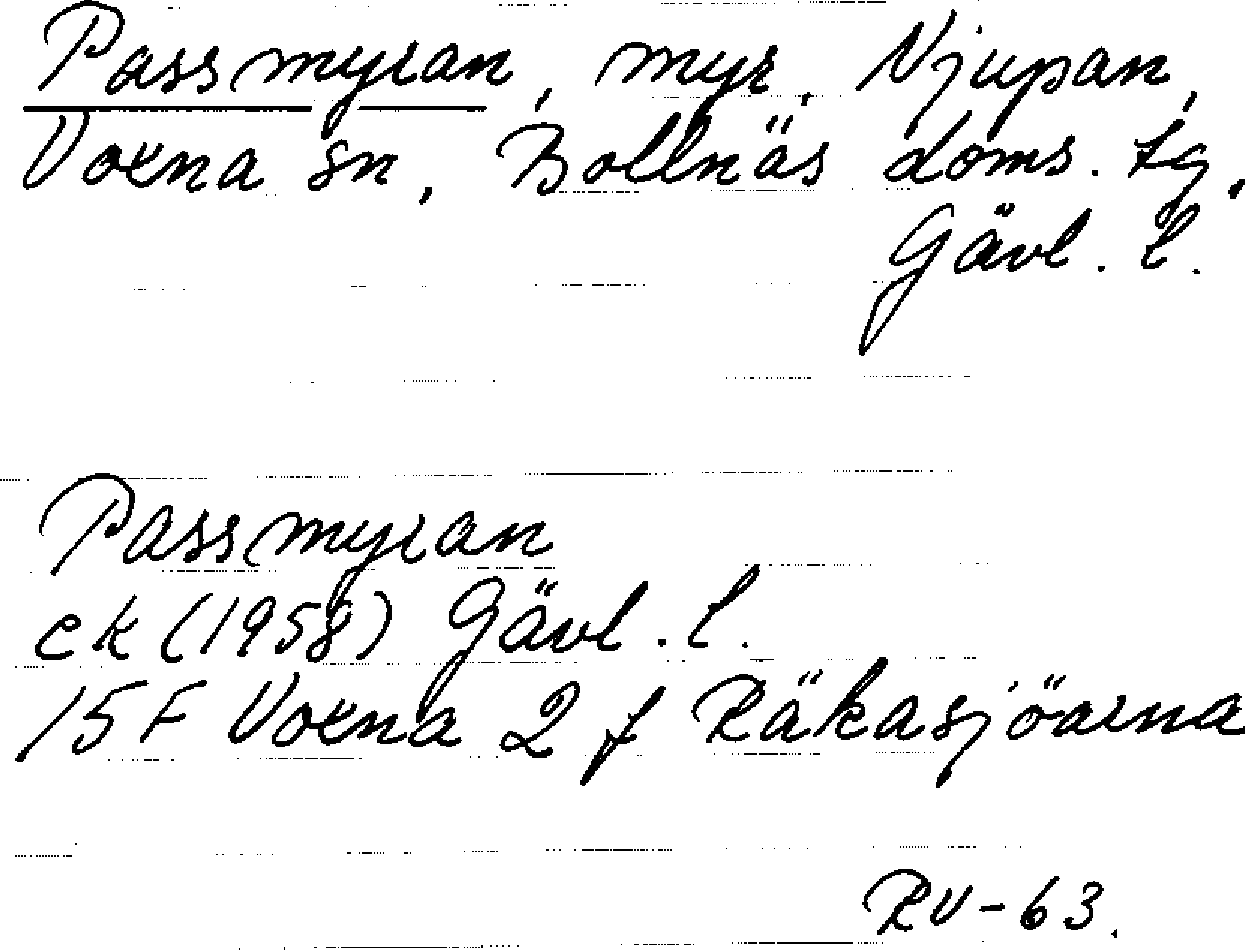 Passmyran, myr, Njupan,
Voxna sn, Bollnäs doms. tg,
Gävl. l.
Passmyran
ek (1958) Gävl. l.
15F Voxna 2 f Räkasjöarna
RV-63.